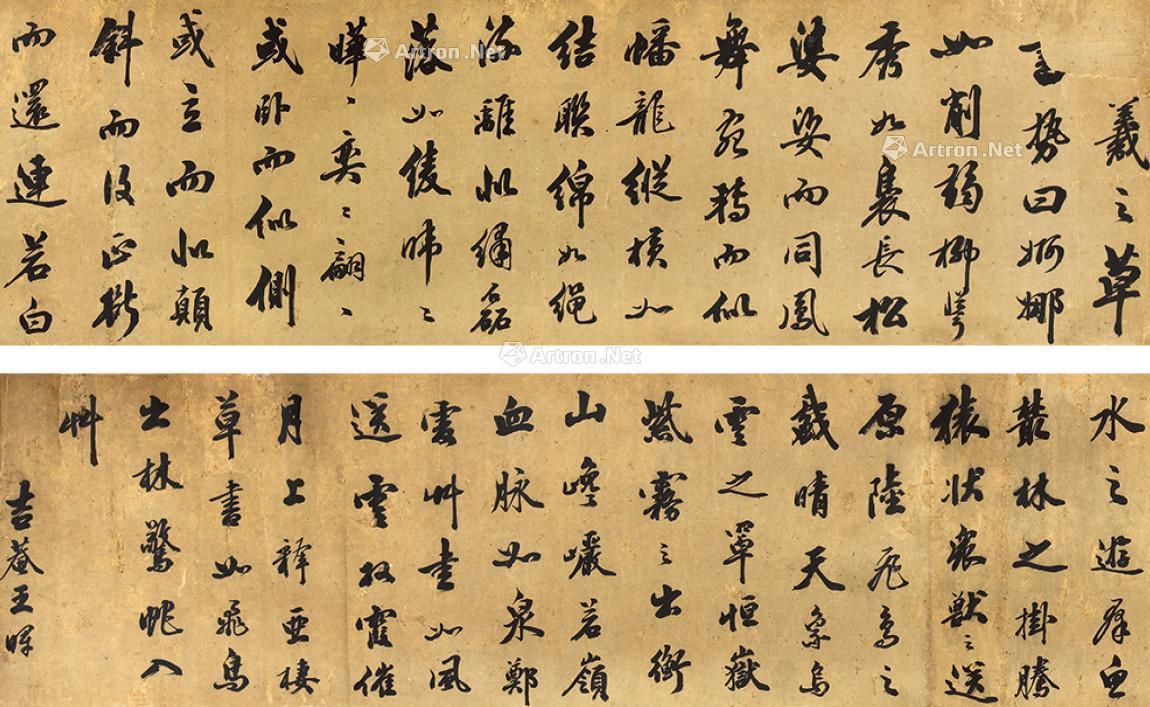 羲之草
之勢曰婀娜
如削弱柳聳
秀如裊長松
婆娑而同鳳
舞宛轉而似
蟠龍縱橫如
結聯綿如繩
流離似繡磊
落如陵暐〻
曄〻奕〻翩〻
或臥而似側
或立而似顛
斜而復正斷
而還連若白
水之遊群魚
叢林之掛騰
猿狀衆獸之逸
原陸飛鳥之
戲晴天象烏
雲之罩恒嶽
紫霧之出衡
山巉巖若嶺
血脉如泉鄭
雲艸書如風
送雲收霞催
月上釋亞棲
草書如飛鳥
出林驚蛇入
艸
吉菴王暉
Artron.Net
Artron.Net
Artron.Net